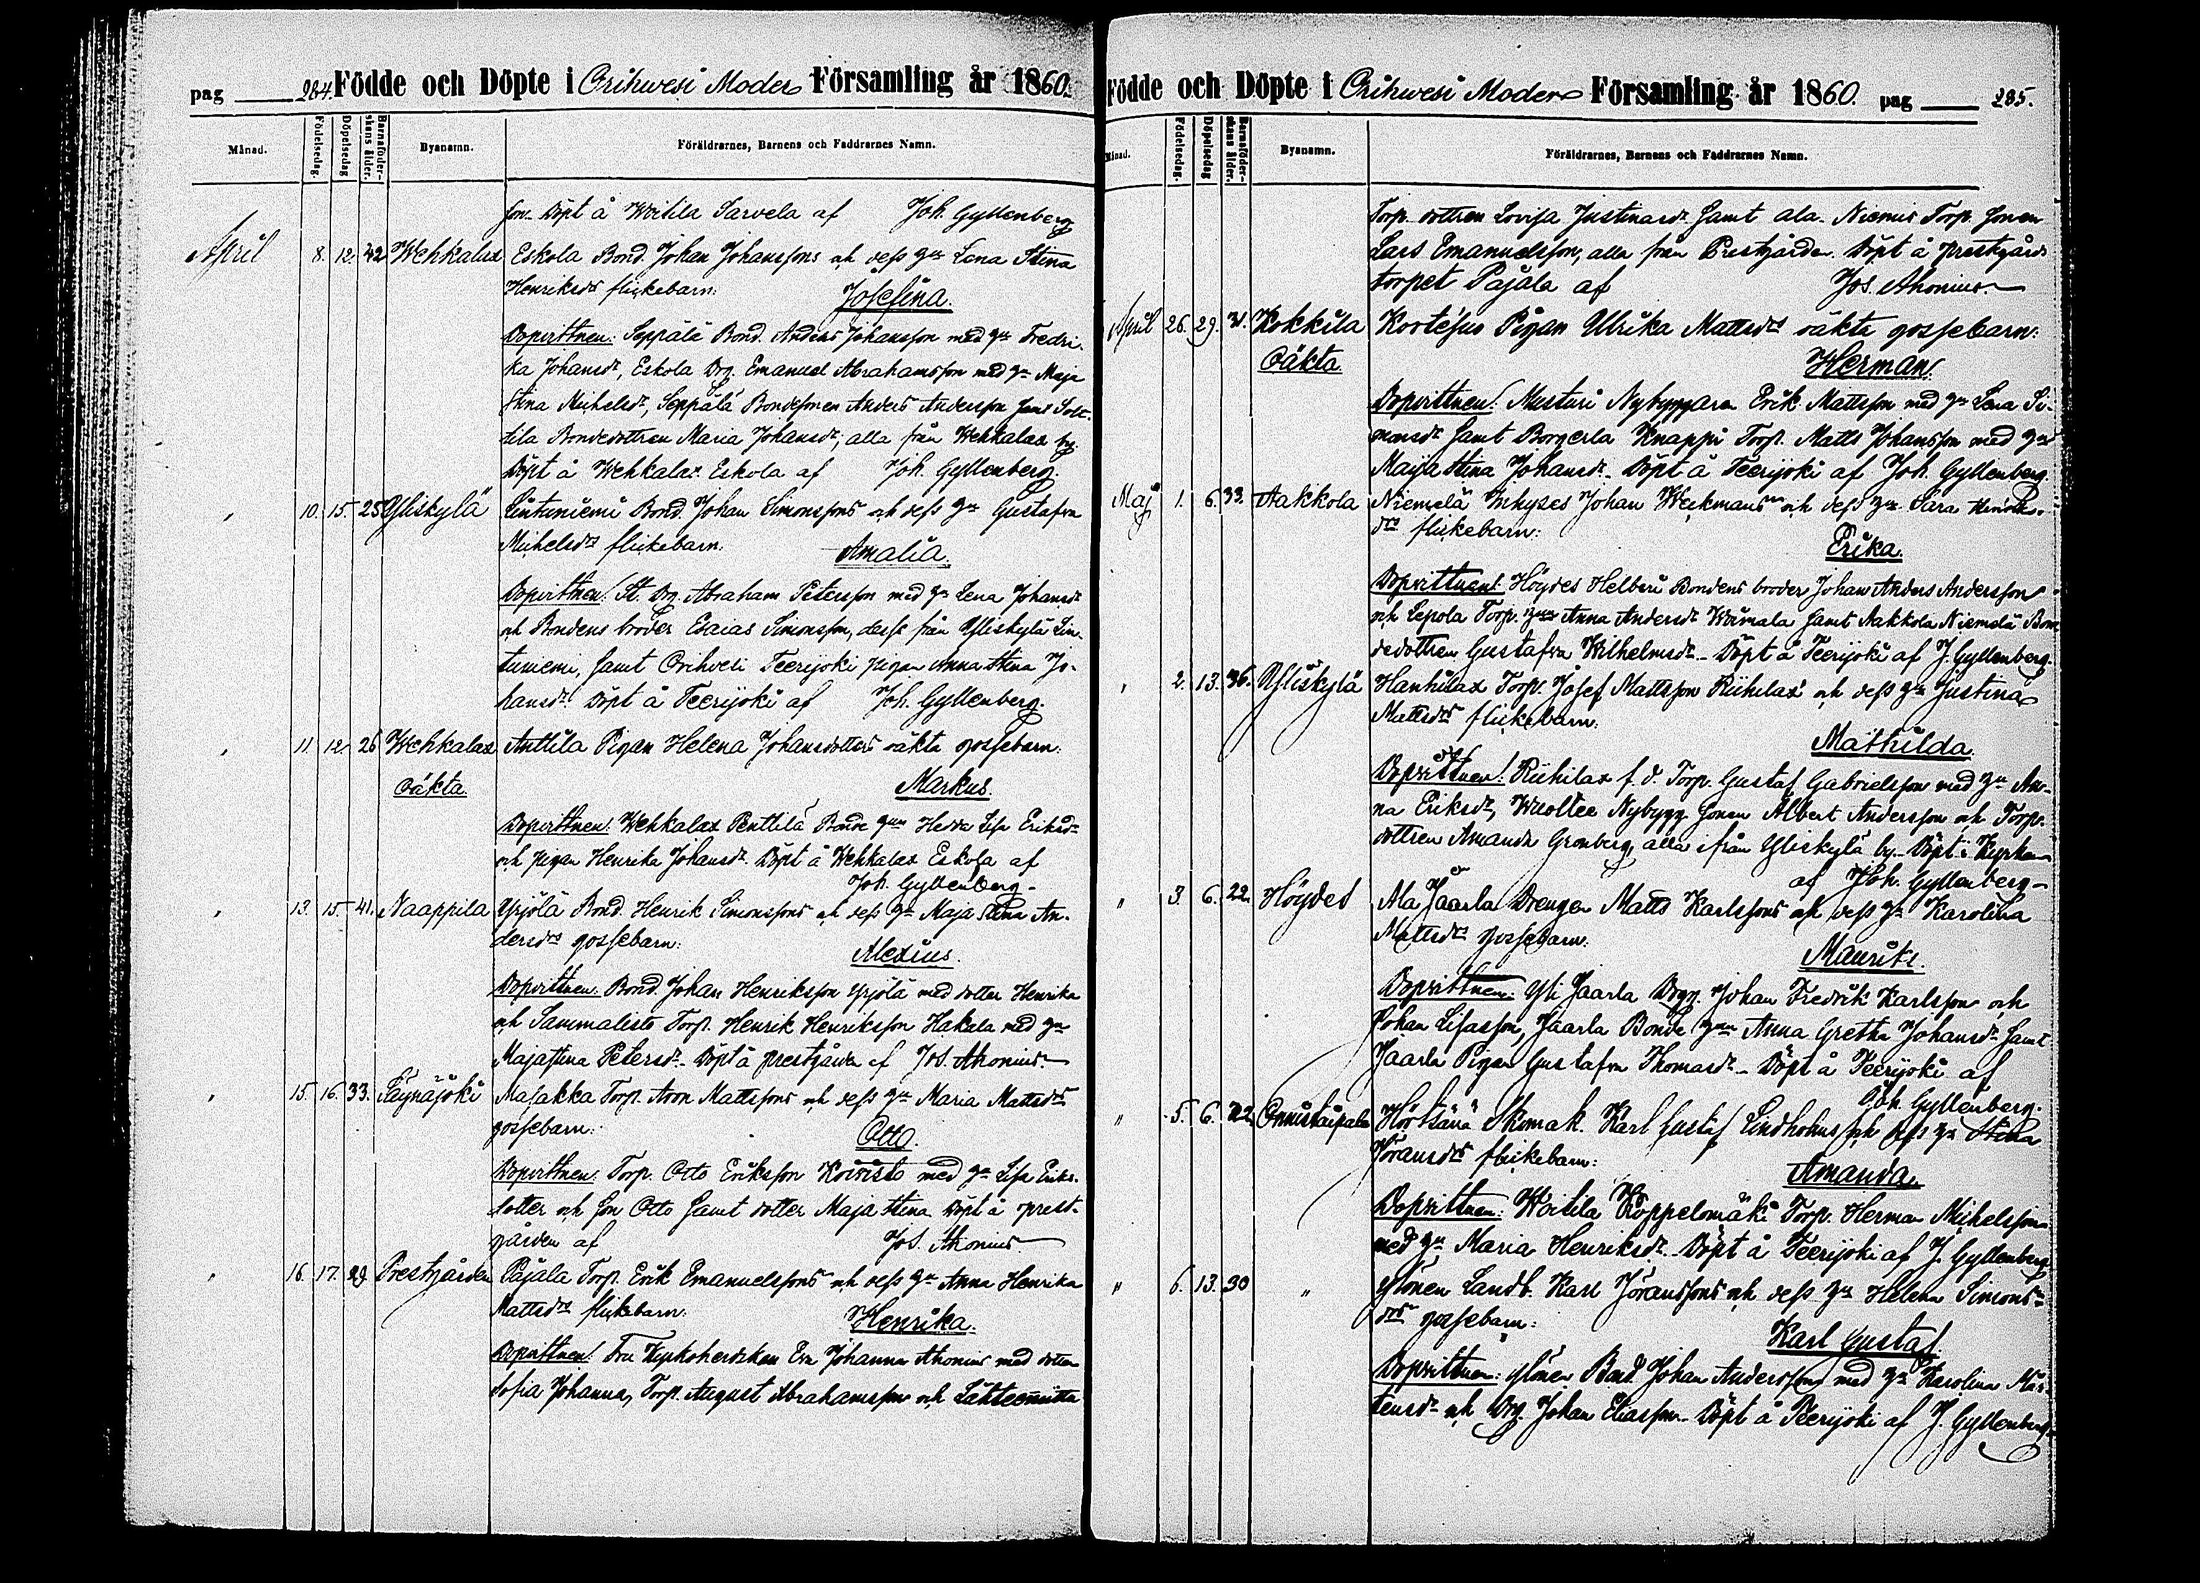 pag 284. Födde och Döpte i Orihwesi Moder Församling år 1860.
Månad. Födelsedag. Döpelsedag. Barnaföderskans ålder. Byanamn. Föräldrarnes, Barnens och Faddrarnes Namn.
son. Döpt å Woitila Sarvela af Joh. Gyllenberg
April 8. 12. 42 Wehkalax Eskola Bond. Johan Johanssons och dess hu Lena Stina
Henriksdrs flickebarn: Josefina.
Dopvittnen: Seppälä Bond. Anders Johansson med hu Fredri-
ka Johansdr, Eskola Drg. Emanuel Abrahamsson med hu Maja
Stina Michelsdr, Seppälä Bondesonen Anders Andersson samt
tila Bondedottren Maria Johansdr; alla från Wehkalax by.
Döpt å Wehkalax Eskola af Joh. Gyllenberg.
" 10. 15. 25 Yliskylä Lintuniemi Bond. Johan Simonssons och dess hu Gustafva
Michelsdrs flickebarn. Amalia.
Dopvittnen: St. Drg. Abraham Petersson med hu Lena Johansdr
och Bondens broder Esaias Simonsson, desse från Yliskylä Lin-
tuniemi, samt Orihvesi Teerijoki pigan Anna Stina Jo-
hansdr. Döpt å Teerijoki af Joh. Gyllenberg.
" 11. 12. 26 Wehkalax Anttila Pigan Helena Johansdotters oäkta gossebarn:
Oäkta. Markus.
Dopvittnen: Wehkalax Penttilä Bonde hun Hedda Lisa Eriksdr
och pigan Henrika Johansdr. Döpt å Wehkalax Eskola af
Joh. Gyllenberg.
" 13. 15. 41. Naappila Yrjölä Bond. Henrik Simonssons och dess hu Maja Stina An-
dersdrs gossebarn: Alexius.
Dopvittnen: Bond. Johan Henriksson Yrjölä med dotter Henrika
och Sammalisto Torp. Henrik Henriksson Hakala med hu
Majastina Petersdr. Döpt å prestgården af Jos. Ahonius.
" 15. 16. 33. Täynäjoki Masakka Torp. Aron Mattssons och dess hu Maria Mattsdrs
gossebarn: Otto.
Dopvittnen: Torp. Otto Eriksson Koivisto med hu Lisa Eriks-
dotter och son Otto samt dotter Maja Stina. Döpt å prest-
gården af Jos. Ahonius.
" 16. 17. 29. Prestgården Pajala Torp. Erik Emanuelssons och dess hu Anna Henrika
Mattsdrs flickebarn: Henrika.
Dopvittnen: Fru Kyrkoherdskan Eva Johanna Ahonius med dotter
Sofia Johanna, Torp. August Abrahamsson och
Födde och Döpte i Orihwesi Moder Församling år 1860. pag 285.
Månad. Födelsedag. Döpelsedag Barnaföderskans ålder. Byanamn. Föräldrarnes, Barnens och Faddrarnes Namn.
Torp. dottren Lovisa Justinasdr samt ala Niemis Torp. sonen
Lars Emanuelsson, alla från Prestgården. Döpt å prestgårds
torpet Pajala af Jos. Ahonius.
April 26. 29. 31. Kokkila Kortesuo Pigan Ulrika Mattsdrs oäkta gossebarn:
Oäkta. Herman.
Dopvittnen: Musturi Nybyggaren Erik Mattsson med hu Lena Si-
monsdr samt Borgerla Knappi Torp. Matts Johansson med hu
Maija Stina Johansdr. Döpt å Teerijoki af Joh. Gyllenberg.
Maj 1. 6. 33. Aakkola Niemelä Inhyses Johan Weckmans och dess hu Sara Henriks-
drs flickebarn: Erika.
Dopvittnen: Höydes Helberi Bondens broder Johan Anders Andersson
och Lepola Torp. hun Anna Andersdr Woimala samt Aakkola Niemelä Bon-
dedottren Gustafva Wilhelmsdr. Döpt å Teerijoki af J. Gyllenberg.
" 2. 13. 36. Yliskylä Hanhilax Torp. Josef Mattsson Riihilax och dess hu Justina
Mattsdrs flickebarn: Mathilda.
Dopvittnen: Riihilax f.d. Torp. Gustaf Gabrielsson med hu An-
na Eriksdr, Wuoltee Nybygg. sonen Albert Andersson och Torp.
dottren Amanda Grönberg, alla ifrån Yliskylä by. Döpt i Kyrkan
af Joh. Gyllenberg.
" 3. 6. 22. Höydes Ala Jaarla Drengen Matts Karlssons och dess hu Karolina
Mattsdrs gossebarn: Maurits.
Dopvittnen: Yli Jaarla Drg. Johan Fredrik Karlsson och
Johan Lisasson, Jaarla Bonde hun Anna Gretha Johansdr samt
Jaarla Pigan Gustafva Thomasdr. Döpt å Teerijoki af
Joh. Gyllenberg.
" 5. 6. 22. Onnistaipale Hörtsänä Skomak. Karl Gustaf Lindholms och dess hu Stina
Göransdrs flickebarn: Amanda.
Dopvittnen: Woitila Koppelomäki Torp. Herman Michelsson
med hu Maria Henriksdr. Döpt å Teerijoki af J. Gyllenberg
" 6. 13. 30 " Ylönen Landb. Karl Göranssons och dess hu Helena Simons-
drs gossebarn: Karl Gustaf.
Dopvittnen: Ylönen Bond. Johan Andersson med hu Karolina Mår-
tensdr och Drg. Johan Eliasson. Döpt å Teerijoki af J. Gyllenberg.